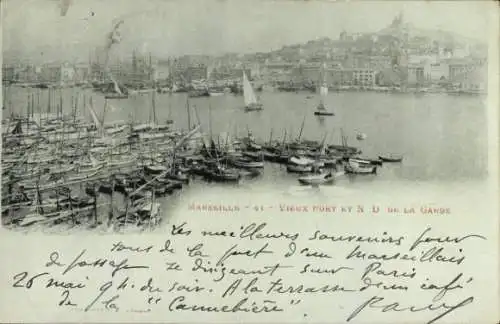 MARSEILLE - 41 - VIEUX PORT ET N D DE LA GARDE
Les meilleurs souvenirs pour
tous de la part d'un marseillais
de passage se dirigeant sur Paris
26 mai 9h. du soir. A la terrasse d'un café
de la "Cannebière"